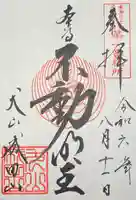 奉拝
令和六年
八月十一日
本尊
不動明王
犬山成田山